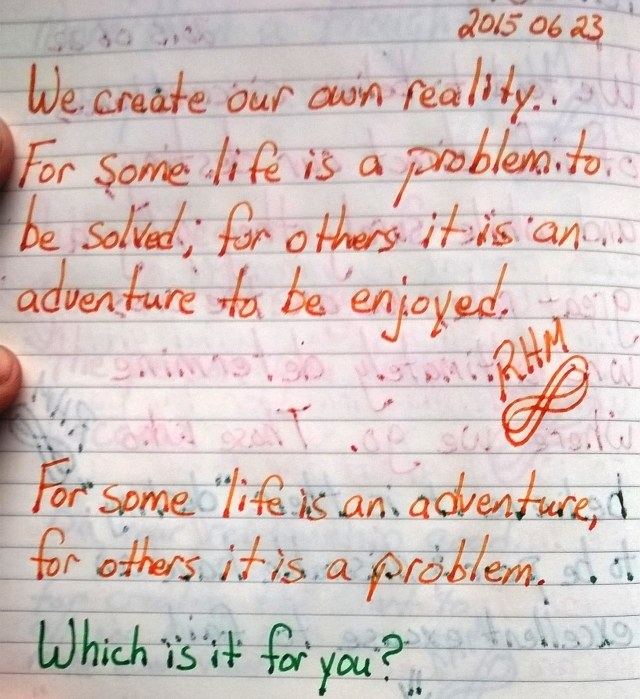 2015 06 23
We create our own reality.
For some life is a problem to
be solved, for others it is an
adventure to be enjoyed.
RHM
For some life is an adventure,
for others it is a problem.
Which is it for you?